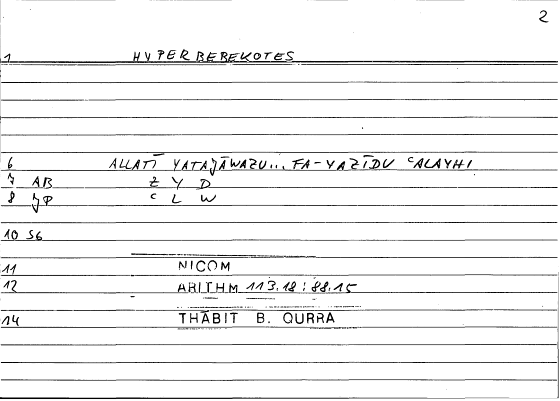 2
1 HYPERBEBEKOTES
6 ALLATĪ YATAJĀWAZU... FA-YAZĪDU ᶜALAYHI
7 AB Z Y D
8 JP ᶜ L W
10 56
11 NICOM
12 ARITHM 113.18 : 88.15
14 THĀBIT B. QURRA